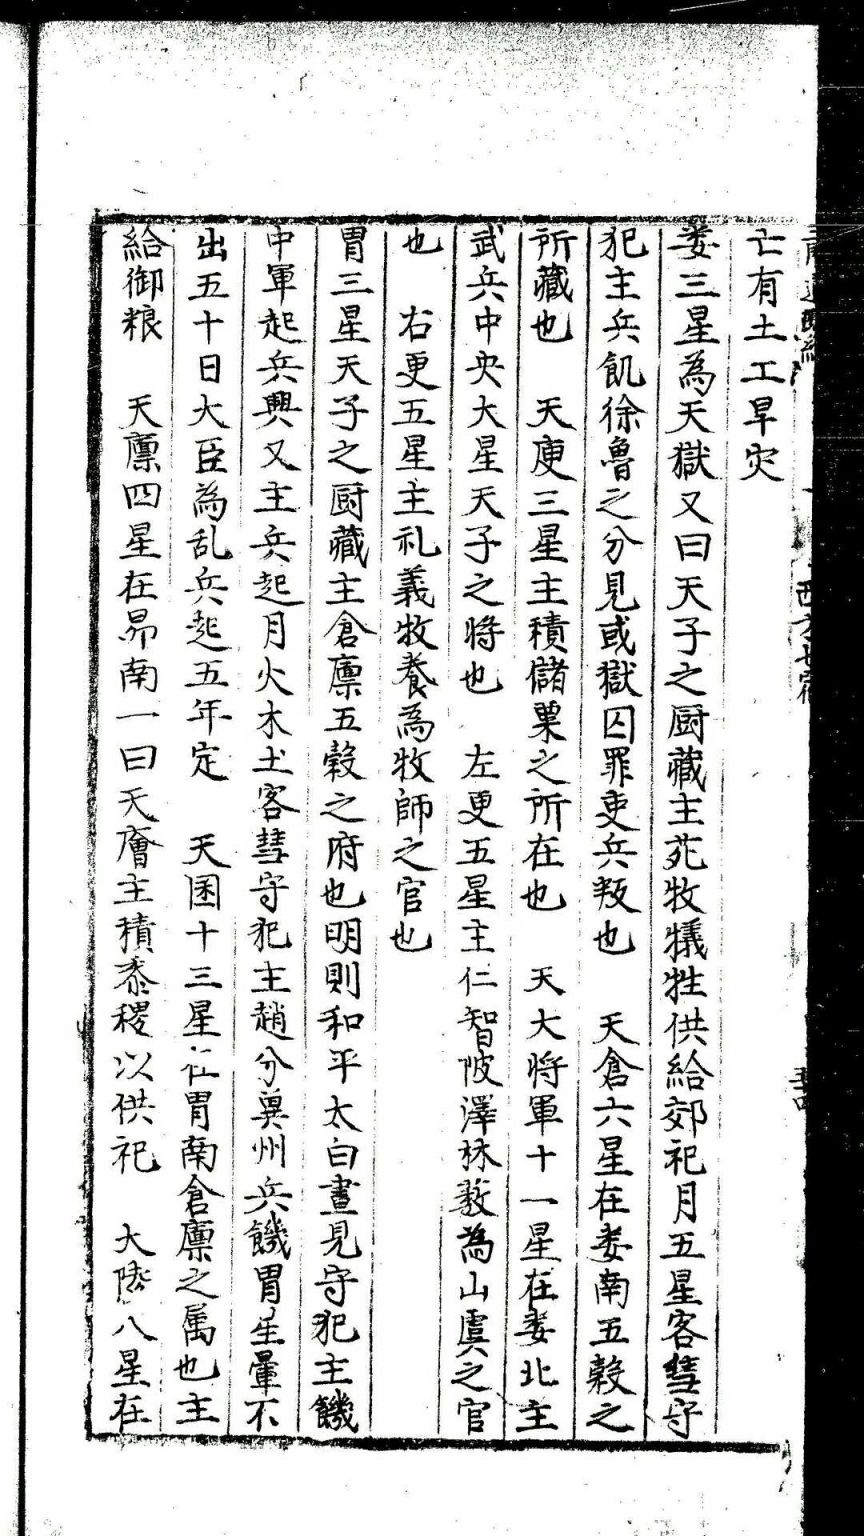 西方七宿
亡有土工旱灾
娄三星為天獄又曰天子之厨藏主苑牧犠牲供給郊祀月五星客彗守
犯主兵飢徐魯之分見或獄囚罪吏兵叛也　天倉六星在娄南五榖之
所藏也　天庾三星主積儲粟之所在也　天大将軍十一星在娄北主
武兵中央大星天子之将也　左更五星主仁智陂澤林薮為山虞之官
也　右更五星主礼義牧養為牧師之官也
胃三星天子之厨藏主倉廪五榖之府也明則和平太白晝見守犯主饑
中軍起兵興又主兵起月火木土客彗守犯主趙分兾州兵饑胃星暈不
出五十日大臣為乱兵起五年定　天囷十三星在胃南倉廪之属也主
給御粮　天廪四星在昴南一曰天廥主積黍稷以供祀　大陵八星在